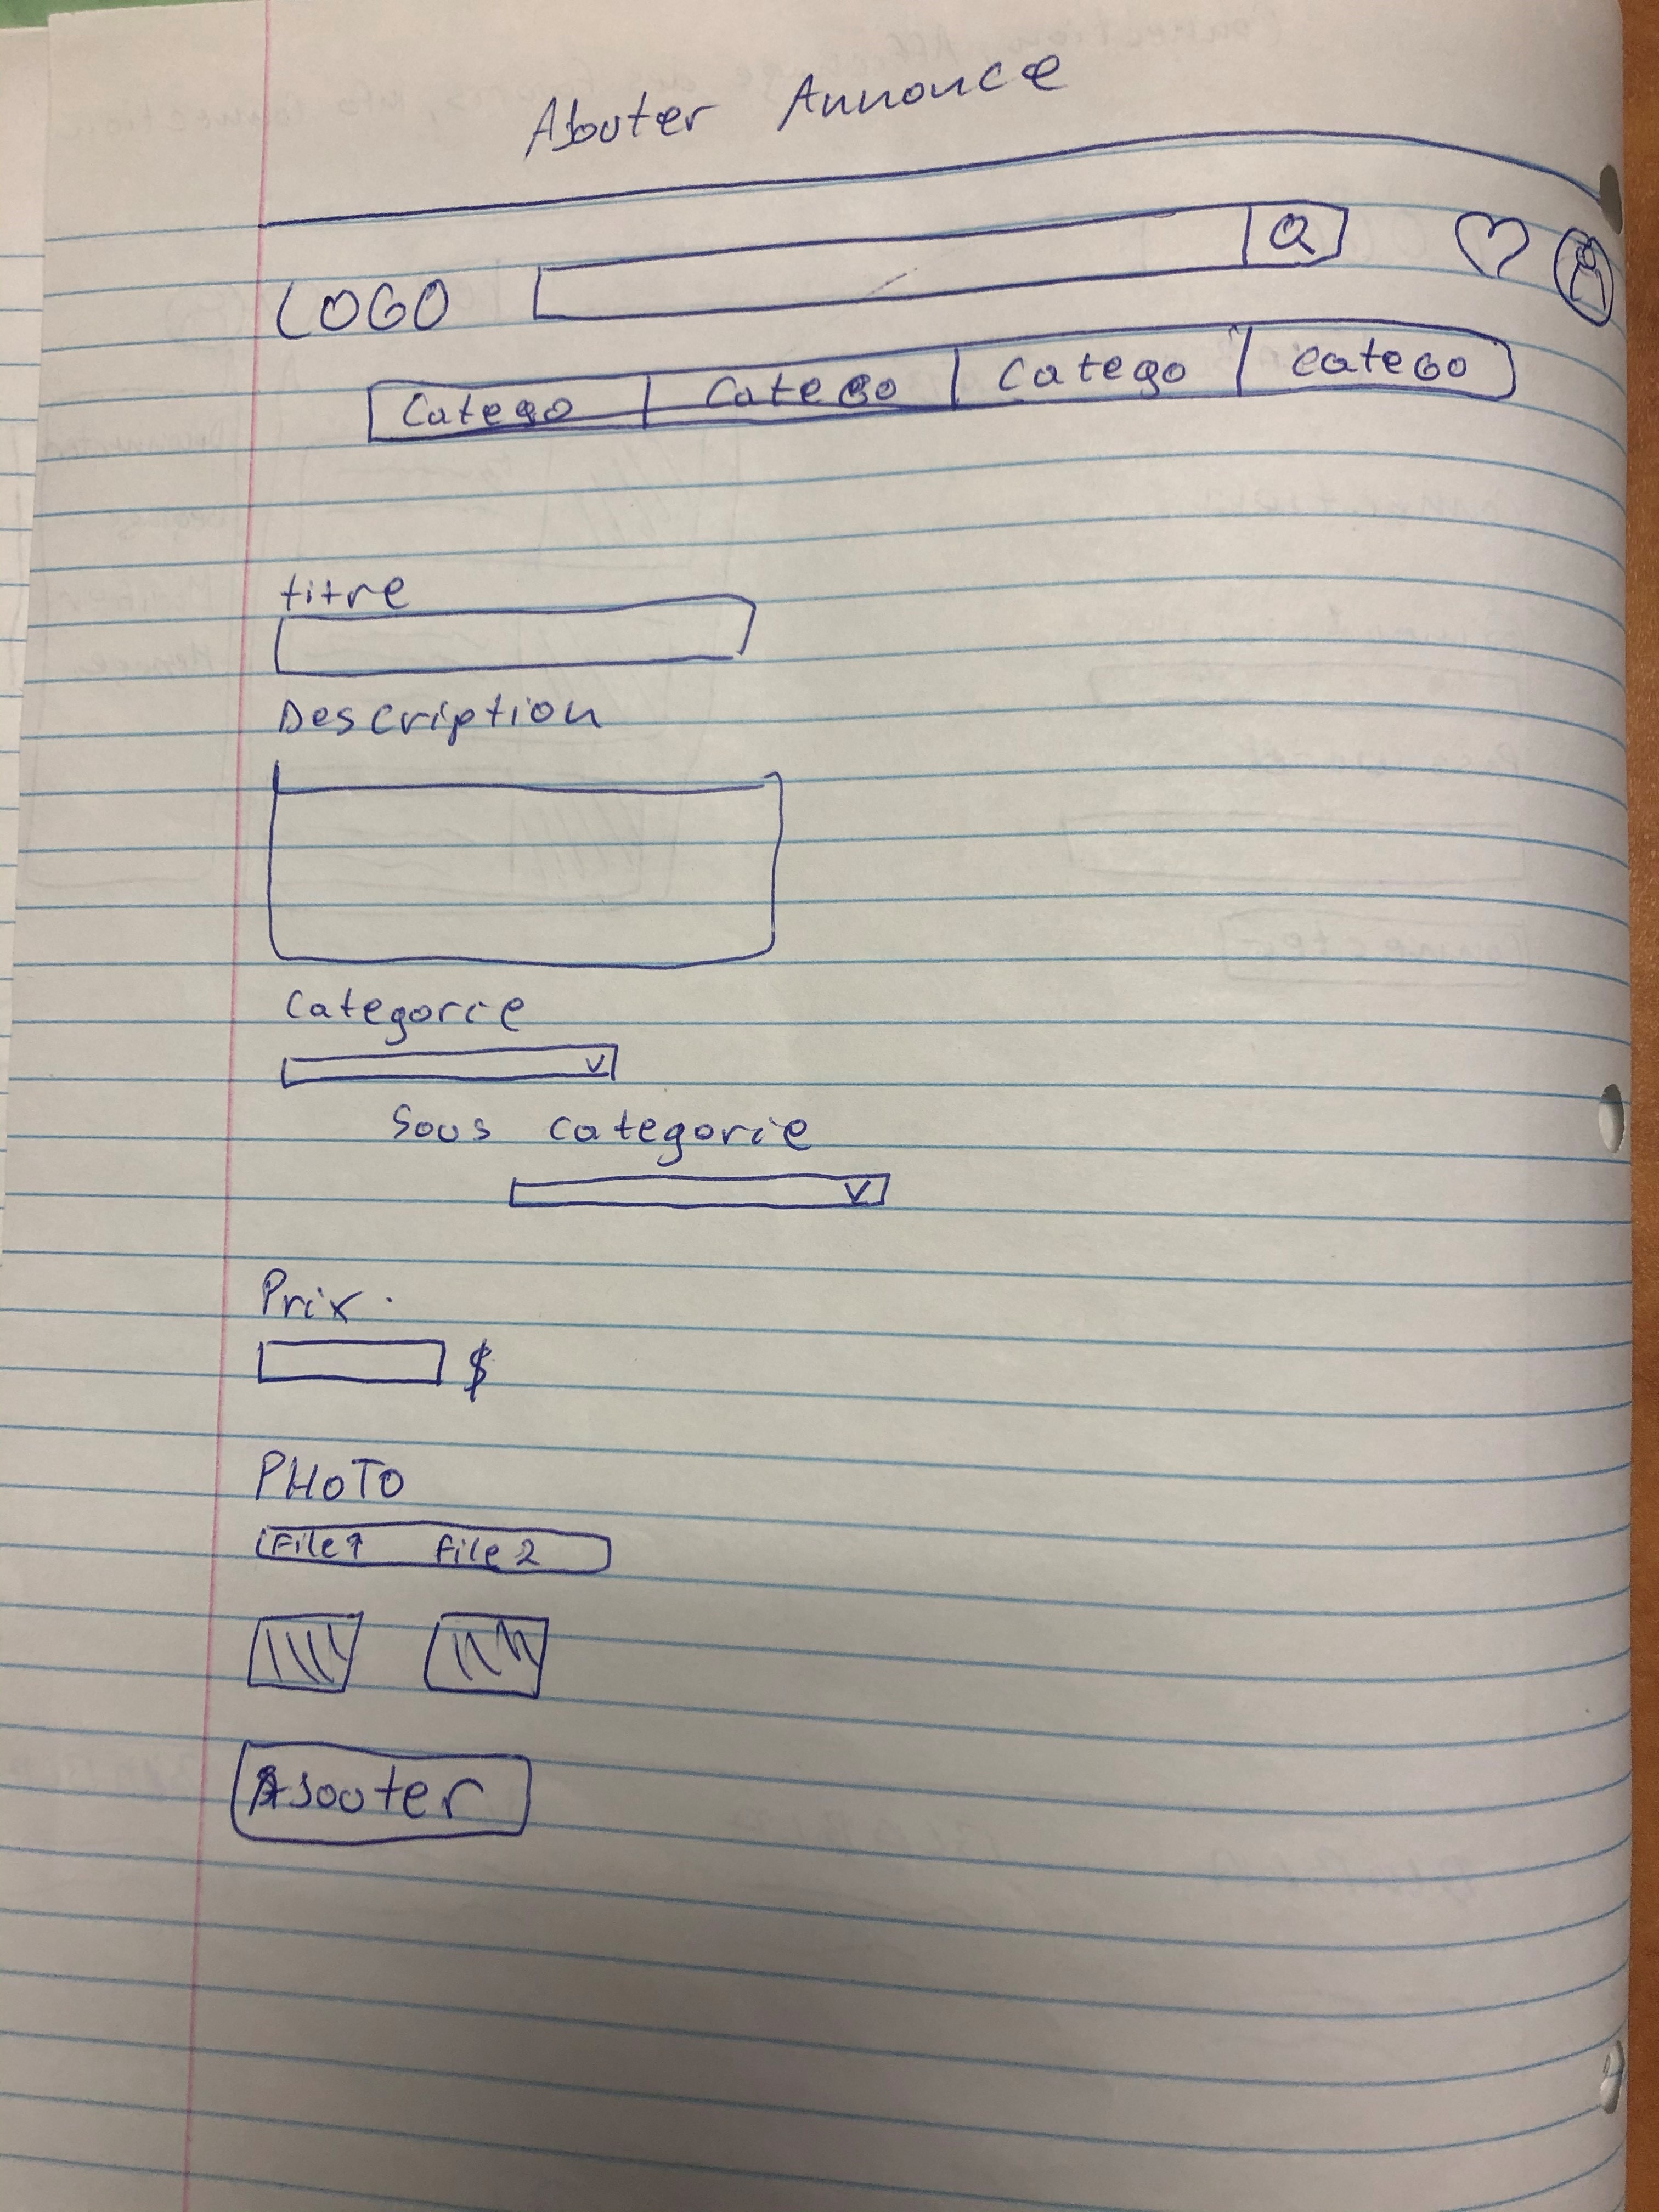 Ajouter Annonce
LOGO
Catego Catego Catego Catego
titre
Description
Categorie
Sous categorie
Prix
$
PHOTO
File1 File2
Ajouter